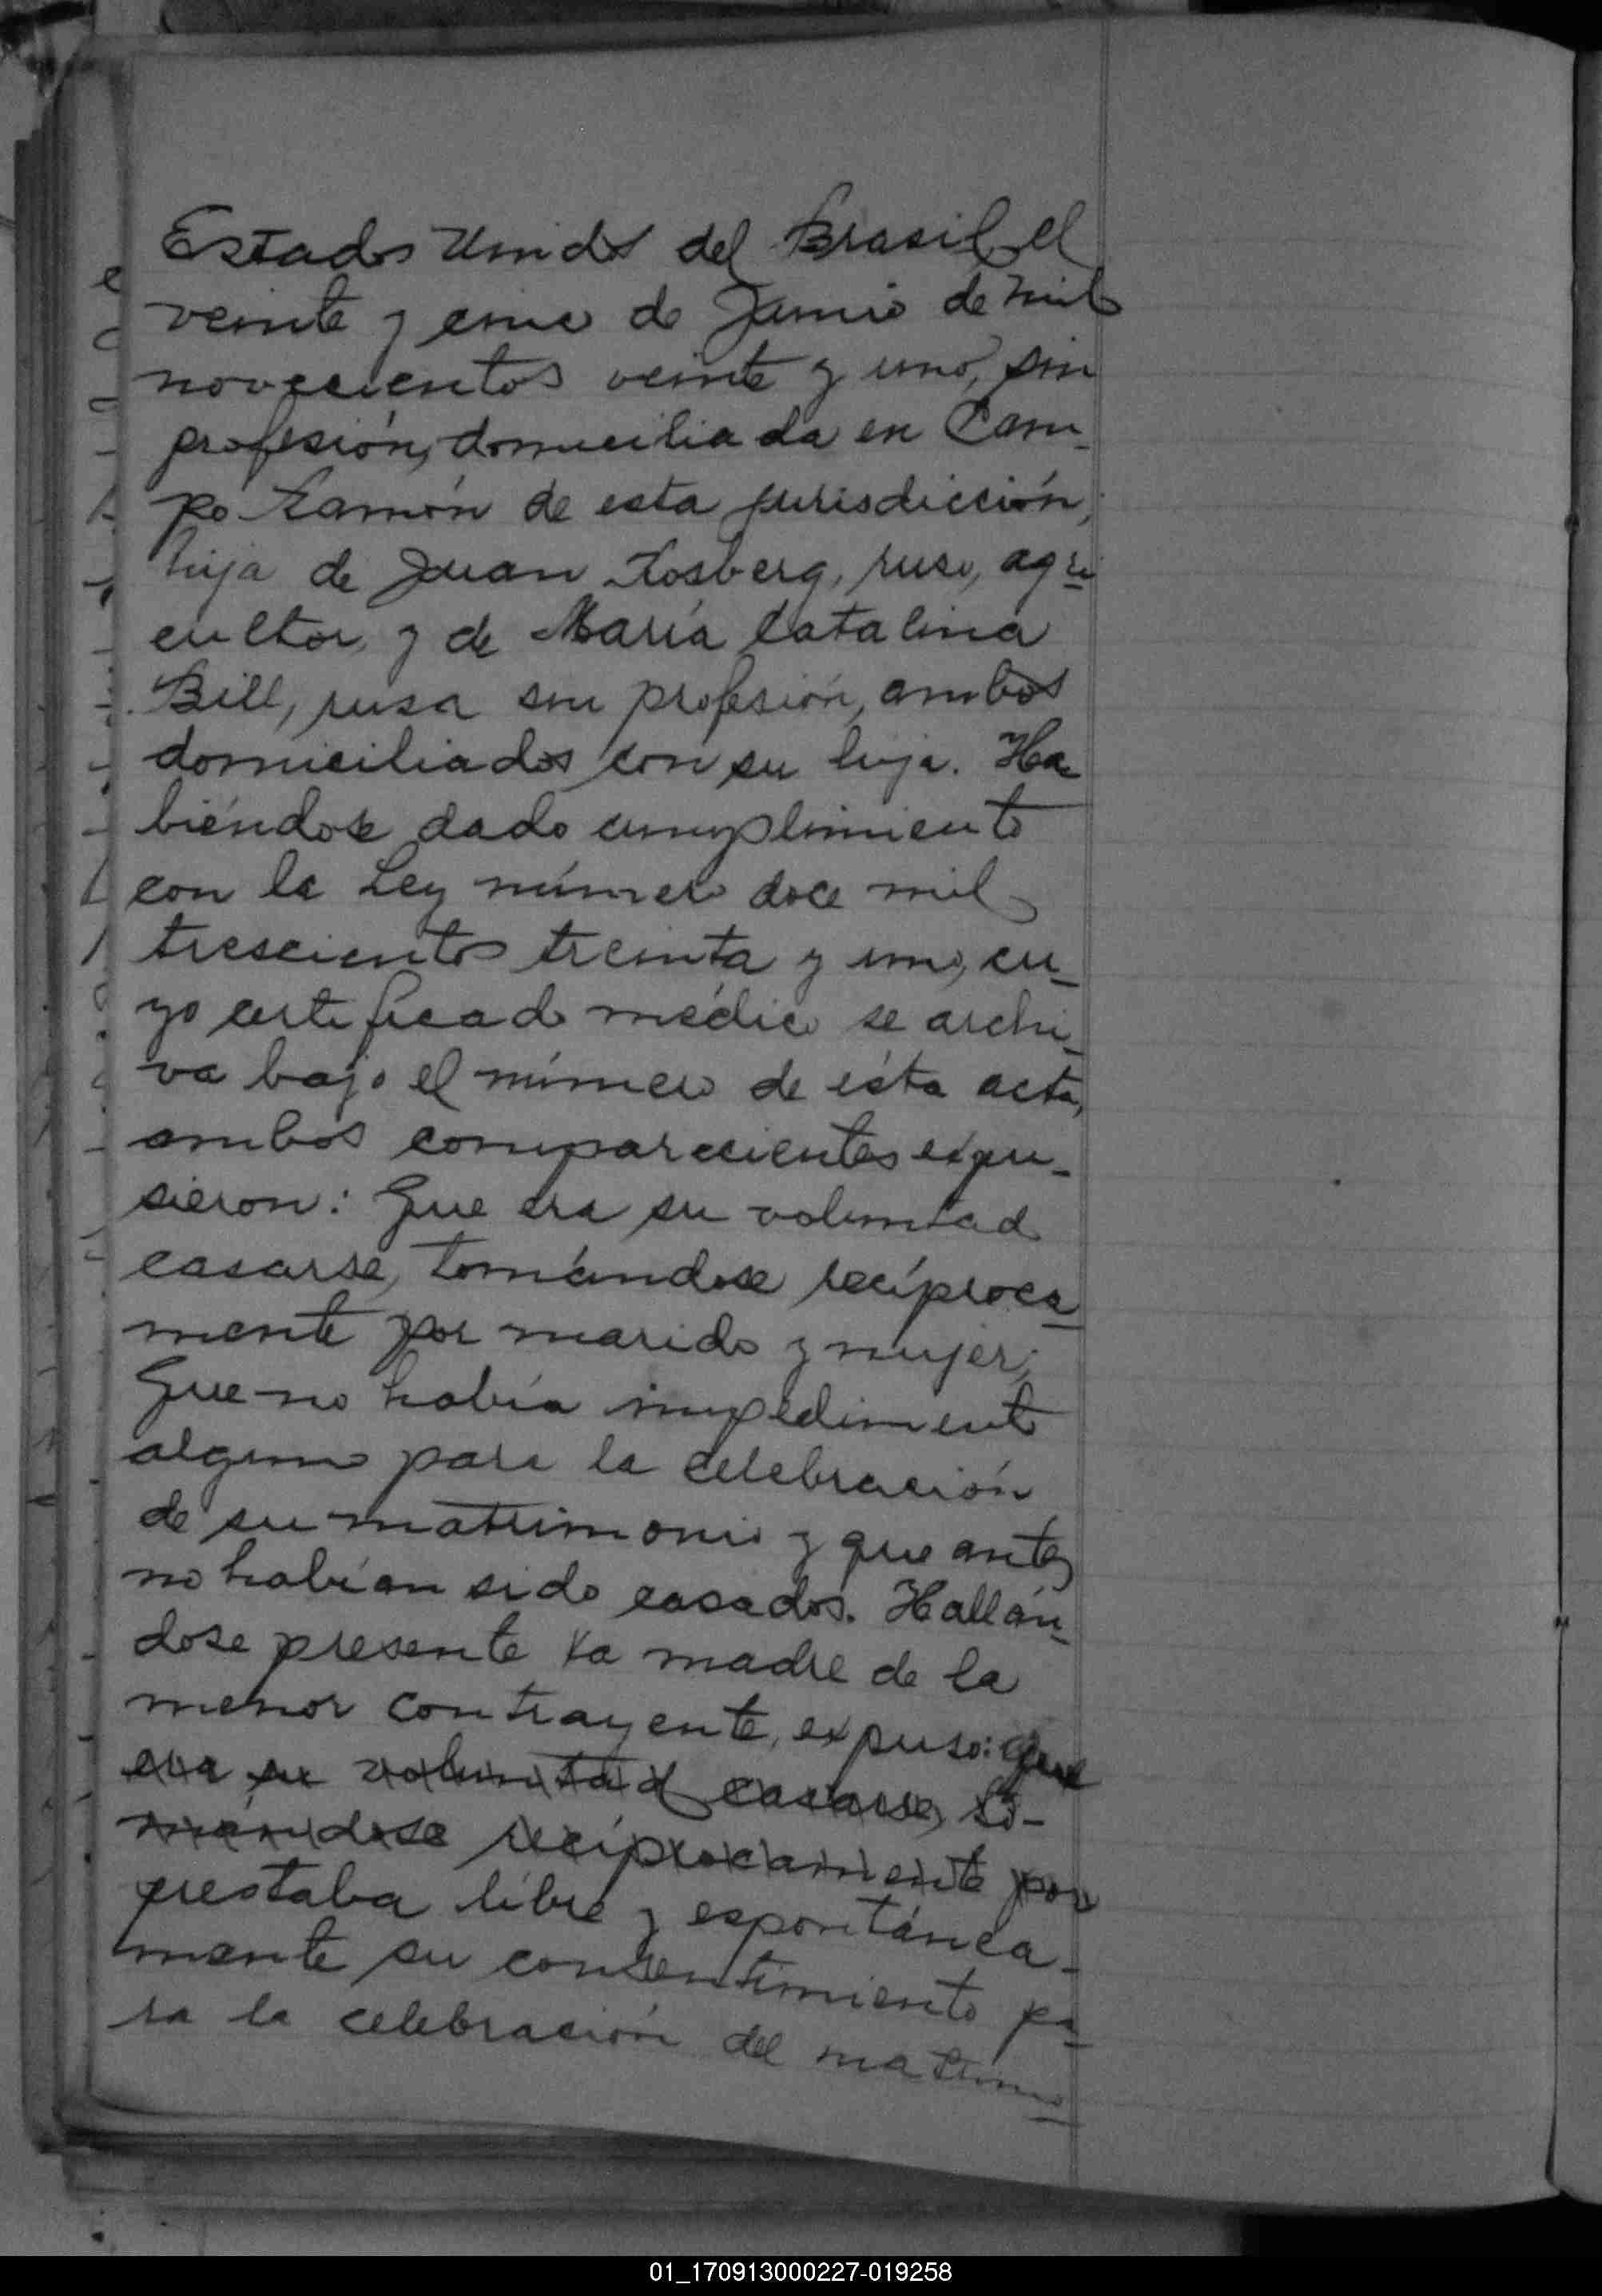 Estados Unidos del Brasil, el
veinte y cinco de Junio de mil
novecientos veinte y uno, sin
profesión, domiciliada en Cam-
po Ramón de esta jurisdicción,
hija de Juan Rosberg, ruso, agri-
cultor, y de María Catalina
Bill, rusa sin profesión, ambos
domiciliados con su hija. Ha-
biéndose dado cumplimiento
con la Ley número doce mil
trescientos treinta y uno, cu-
yo certificado médico se archi-
va bajo el número de ésta acta,
ambos comparecientes expu-
sieron: Que era su voluntad
casarse, tomándose recíproca-
mente por marido y mujer;
Que no había impedimento
alguno para la celebración
de su matrimonio y que antes
no habían sido casados. Hallán-
dose presente la madre de la
menor contrayente, expuso: Que
era su voluntad casarse, to-
mándose recíprocamente por
prestaba libre y espontánea-
mente su consentimiento pa-
ra la celebración del matrimo-
01_170913000227-019258